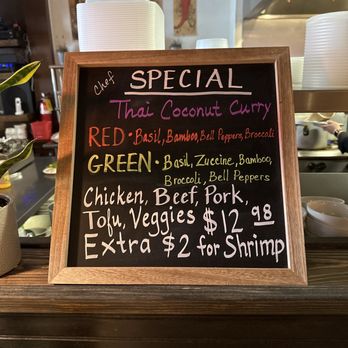 Chef
SPECIAL
Thai Coconut Curry
RED • Basil, Bamboo, Bell Peppers, Broccoli
GREEN • Basil, Zuccine, Bamboo,
Broccoli, Bell Peppers
Chicken, Beef, Pork,
Tofu, Veggies $12 98
Extra $2 for Shrimp